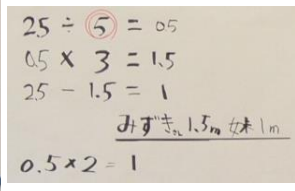 25 ÷ 5 = 0.5
0.5 × 3 = 1.5
25 - 1.5 = 1
みずき 1.5m 妹1m
0.5×2=1